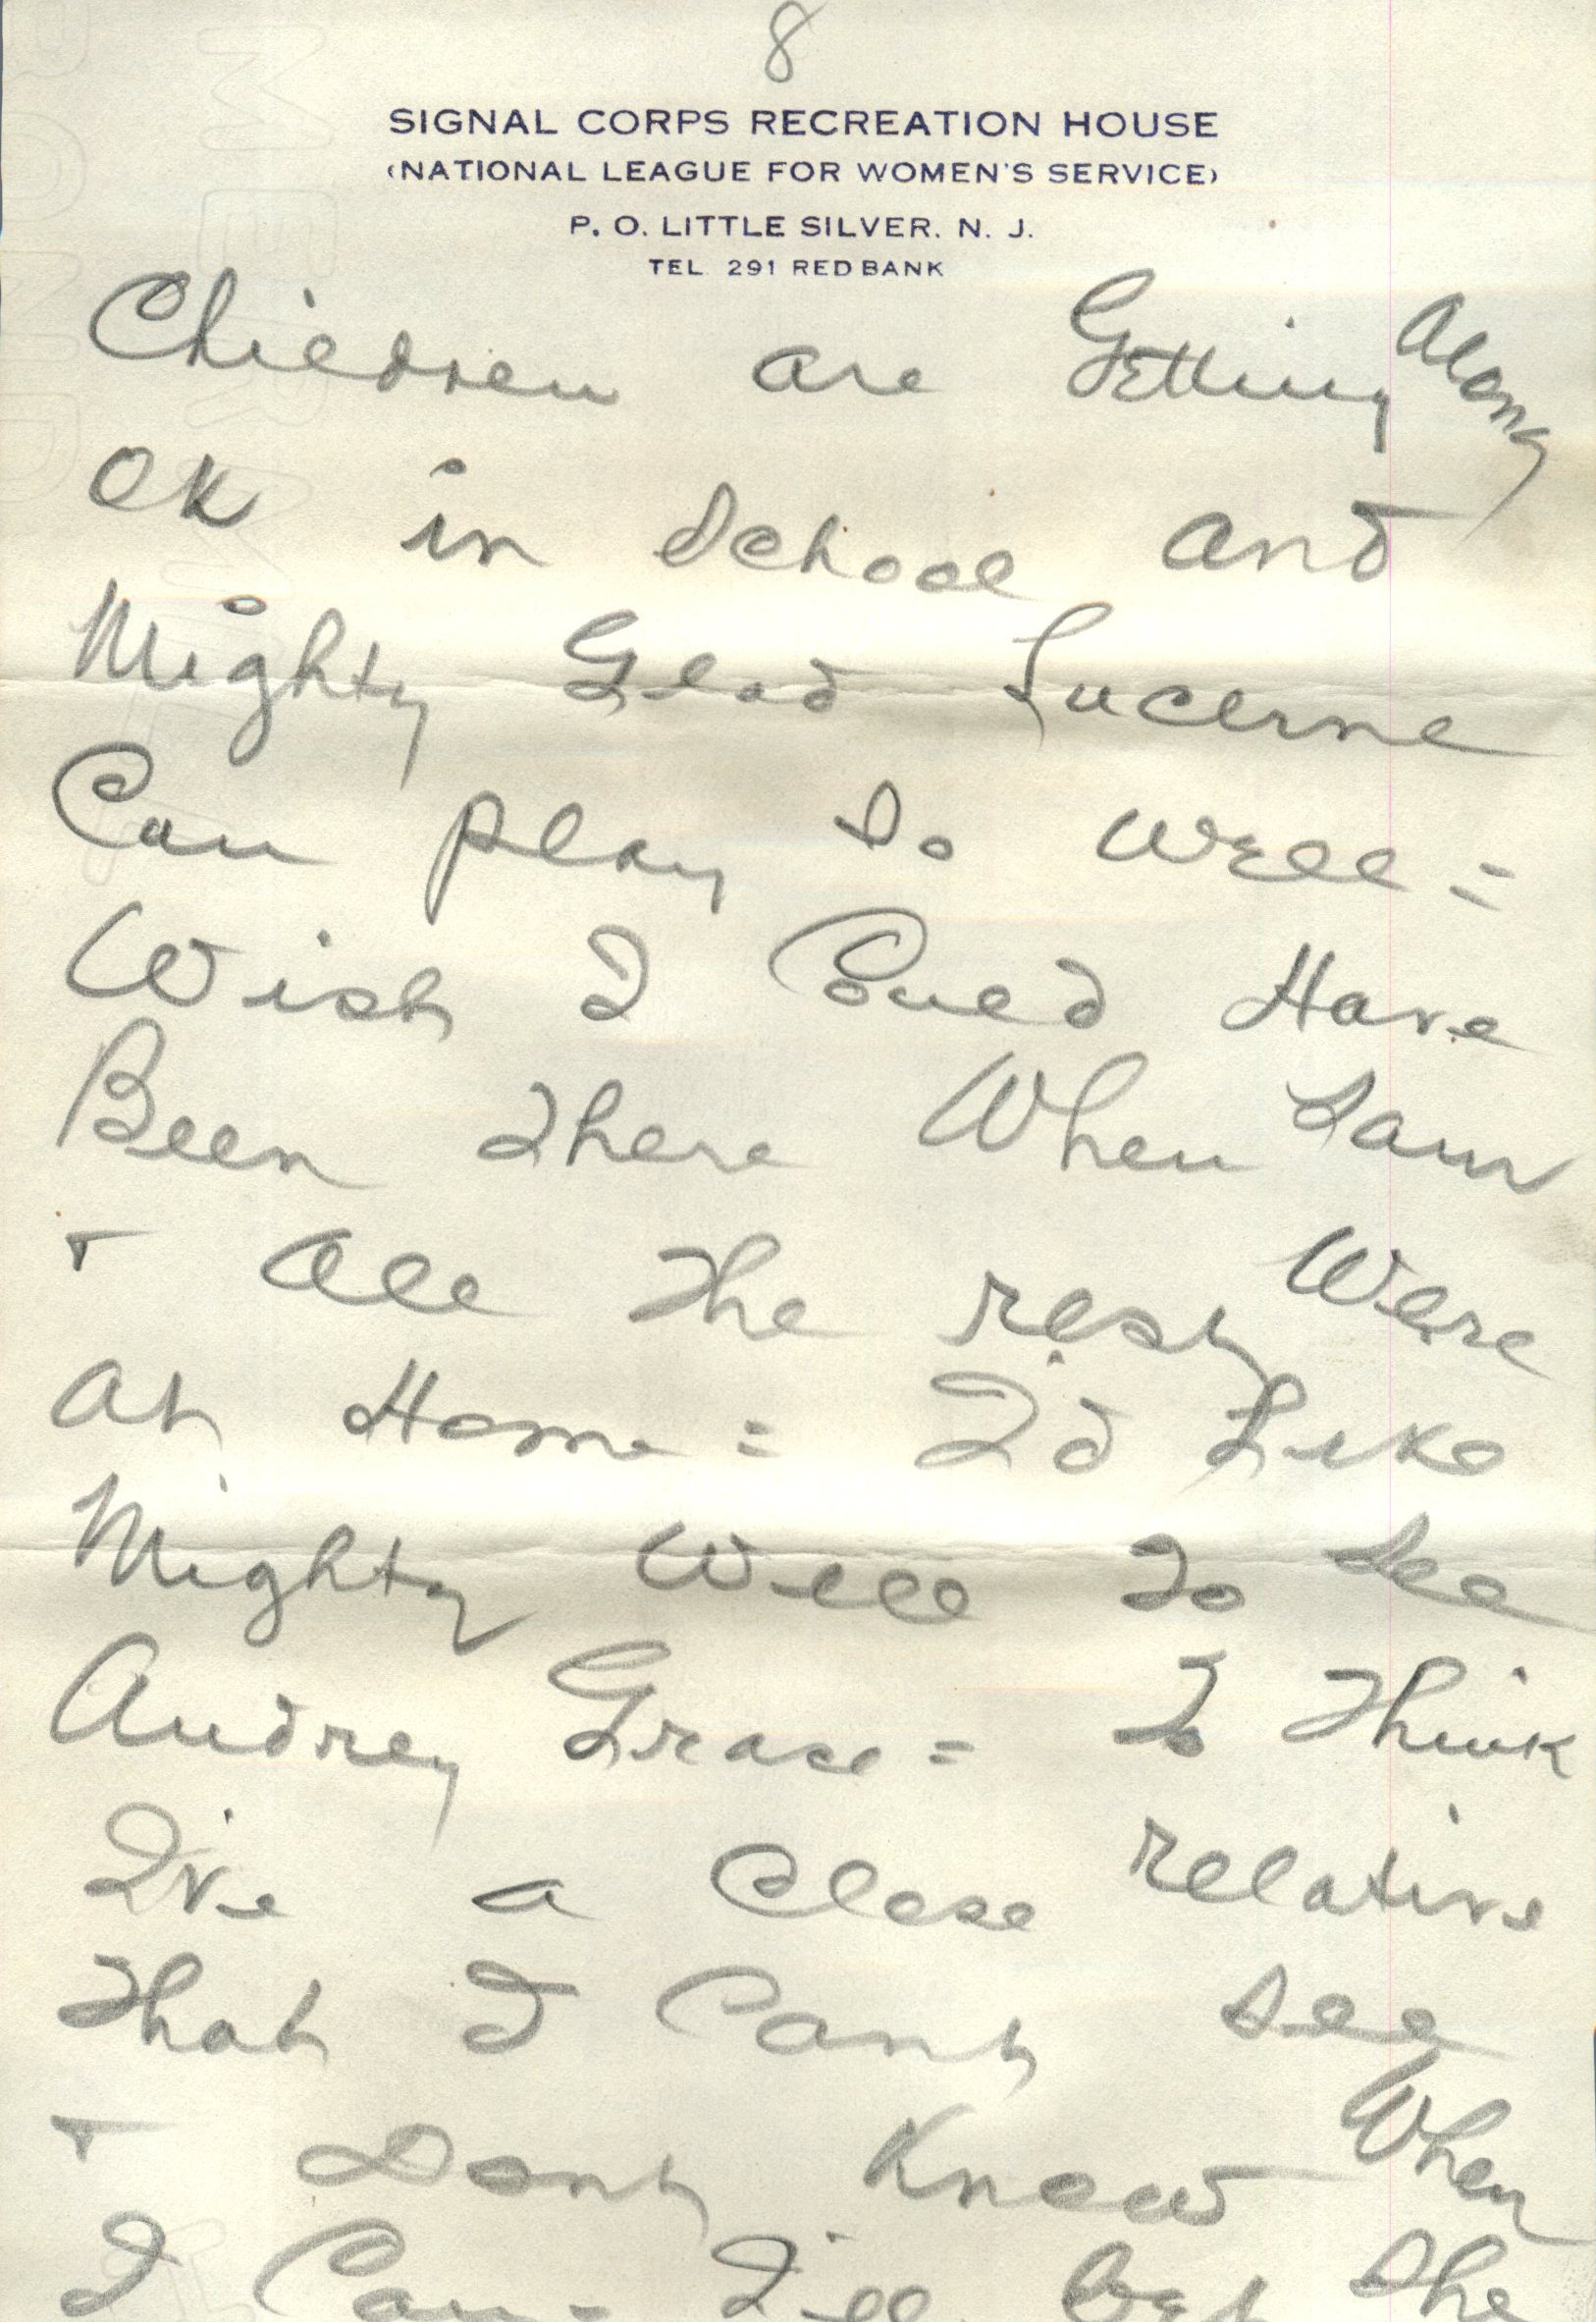 8
SIGNAL CORPS RECREATION HOUSE
(NATIONAL LEAGUE FOR WOMEN'S SERVICE)
P. O. LITTLE SILVER. N. J.
TEL. 291 RED BANK
Children are Getting Along
OK in School and
Mighty Glad Lucerne
Can play So Well =
Wish I Could Have
Been There When Sam
+ All The rest Were
at Home = I'd Like
Mighty Well To See
Audrey Grace = To Think
I've a Close relative
That I Cant See
+ Dont Know When
I Can = I'll Bet She